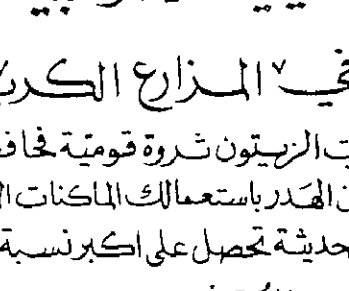 المزارع الكر
الزيتون ثروة قومية فحاف
الهدر باستعمالك الماكنات ال
حديثة تحصل على اكبر نسبة